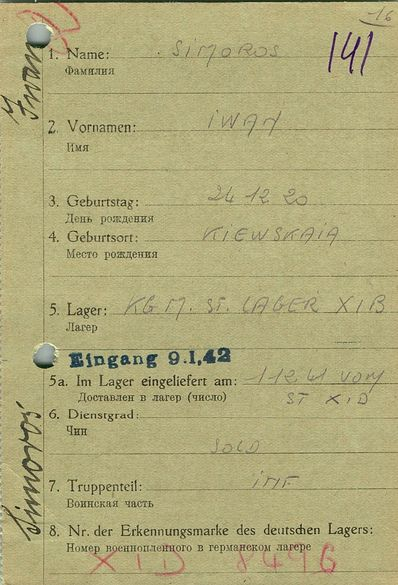 16
141
Iwan
1. Name: SIMOROS
Фамилия
2. Vornamen: IWAN
Имя
3. Geburtstag: 24 12 20
День рождения
4. Geburtsort: KIEWSKAIA
Место рождения
5. Lager: KGM. ST. LAGER XIB
Лагер
Eingang 9.1.42
5a. Im Lager eingeliefert am: 1-12.41 VOM
Доставлен в лагер (число) ST XID
6. Dienstgrad:
Чин
SOLD
7. Truppenteil: INF
Воинская часть
Simoros
8. Nr. der Erkennungsmarke des deutschen Lagers:
Номер военнопленного в германском лагере
XID 8496